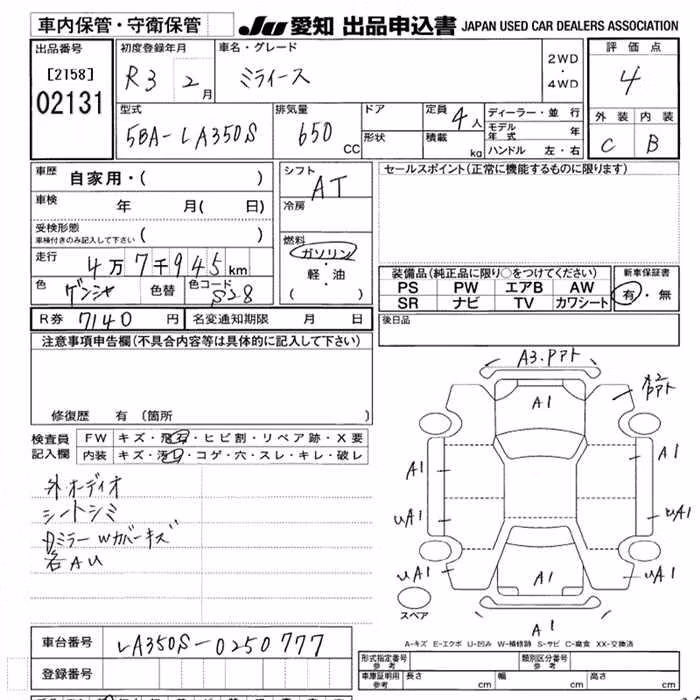 車内保管・守衛保管
JU 愛知 出品申込書 JAPAN USED CAR DEALERS ASSOCIATION
出品番号
[2158]
02131
初度登録年月
R3 2月
車名・グレード
ミライース
2WD
・
4WD
評価点
4
型式
5BA-LA350S
排気量
650 CC
ドア
形状
定員 4人
積載 kg
ディーラー・並行
モデル年式 年
ハンドル 左・右
外装 内装
C B
車歴 自家用・( )
車検 年 月( 日)
受検形態
車検付きのみ記入して下さい ( )
走行 4万7千945km
色 ゲンシャ 色替 色コード S28
シフト
AT
冷房
燃料
ガソリン
・
軽・油
( )
セールスポイント(正常に機能するものに限ります)
装備品(純正品に限り○をつけてください)
PS PW エアB AW
SR ナビ TV カワシート
新車保証書
有・無
R券 7140 円 名変通知期限 月 日
後日品
注意事項申告欄(不具合内容等は具体的に記入して下さい)
修復歴 有(箇所
検査員
記入欄
FW キズ・飛石・ヒビ割・リペア跡・X要
内装 キズ・汚れ・コゲ・穴・スレ・キレ・破レ
外.オーディオ
シートシミ
Dミラー Wカバーキズ
各AU
A3.Pアト
A1
A2
Pアト
A1
A1
UA1
UA1
UA1
UA1
A1
A1
スペア
A-キズ E-エクボ U-凹み W-補修跡 S-サビ C-腐食 XX-交換済
車台番号 LA350S-0250777
登録番号
形式指定番号
参考
類別区分番号
参考
車庫証明用
参考
長さ cm 幅 cm 高さ cm